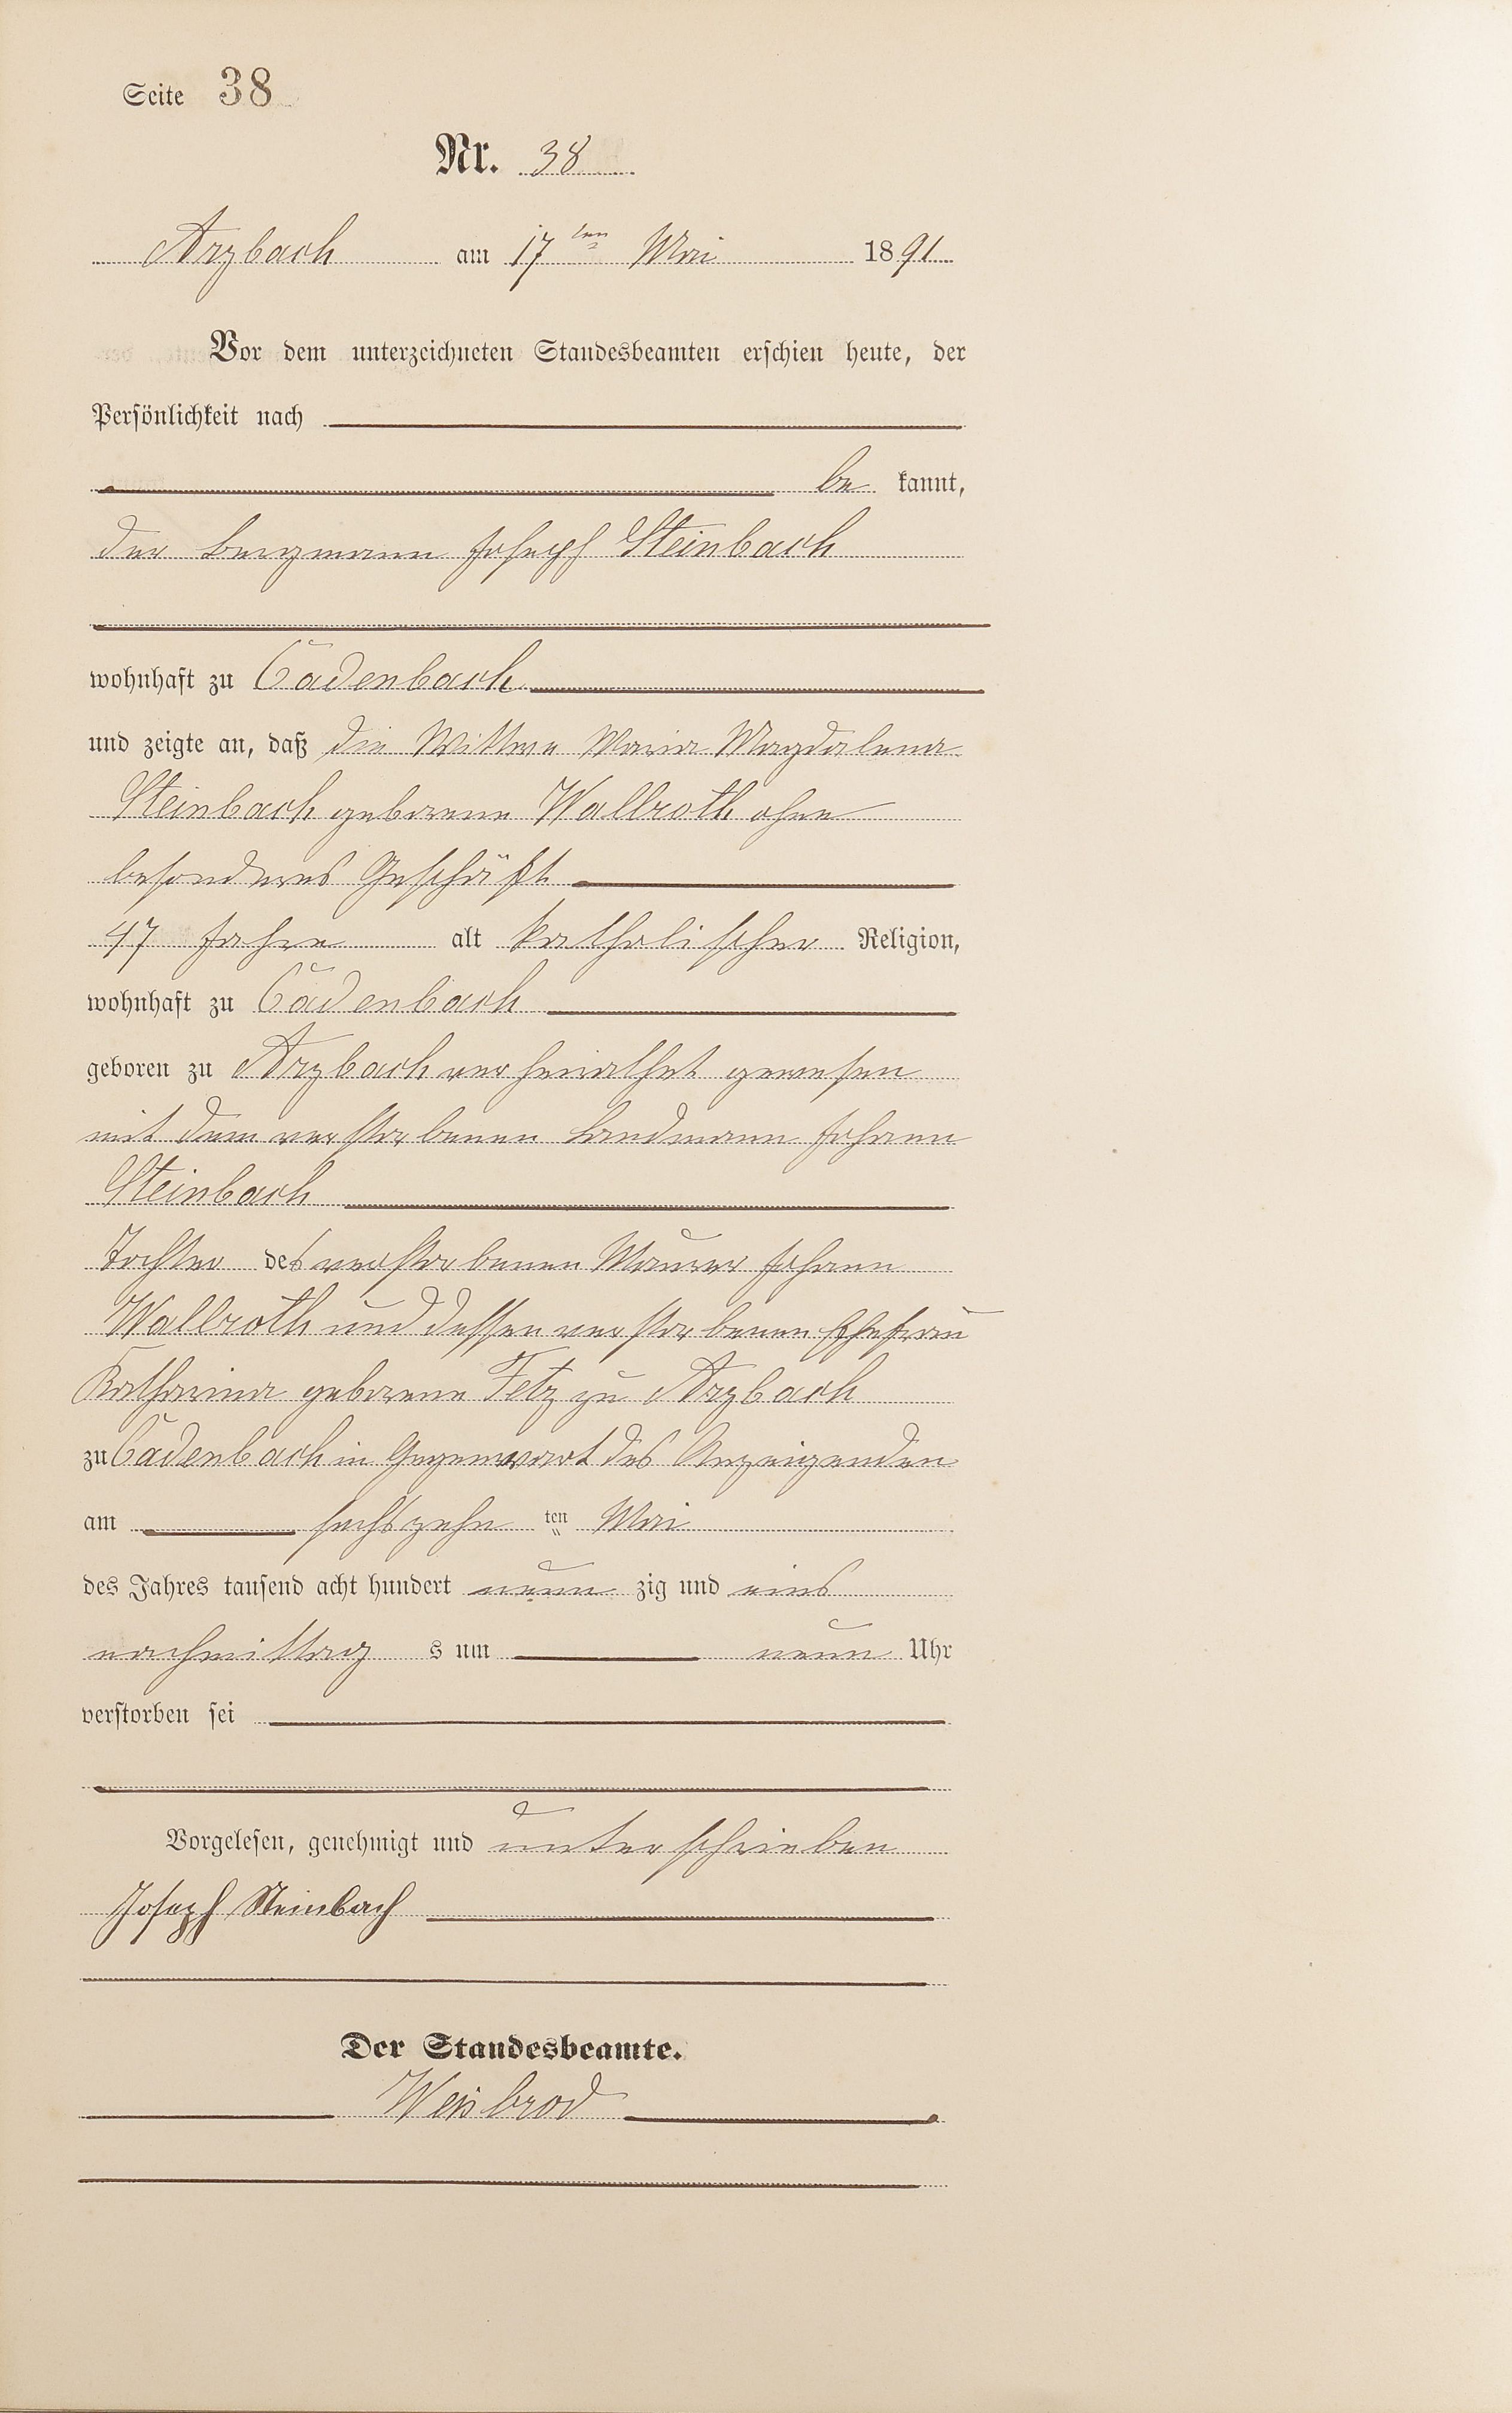 Seite 38
Nr. 38
Arzbach am 17ten Mai 1891
Vor dem unterzeichneten Standesbeamten erschien heute, der
Persönlichkeit nach
be kannt,
der Bergmann Joseph Steinbach
wohnhaft zu Cadenbach
und zeigte an, daß die Wittwe Maria Magdalena
Steinbach geborene Wallroth ohne
besonderes Geschäft
47 Jahre alt katholischer Religion,
wohnhaft zu Cadenbach
geboren zu Arzbach verheirathet gewesen
mit dem verstorbenen Landmann Johann
Steinbach
Tochter des verstorbenen Maurer Johann
Wallroth und dessen verstorbenen Ehefrau
Katharina geborene Fetz zu Arzbach
zu Cadenbach in Gegenwart des Anzeigenden
am sechszehn ten Mai
des Jahres tausend acht hundert neun zig und eins
nachmittag s um neun Uhr
verstorben sei
Vorgelesen, genehmigt und unterschrieben
Joseph Steinbach
Der Standesbeamte.
Weisbrod